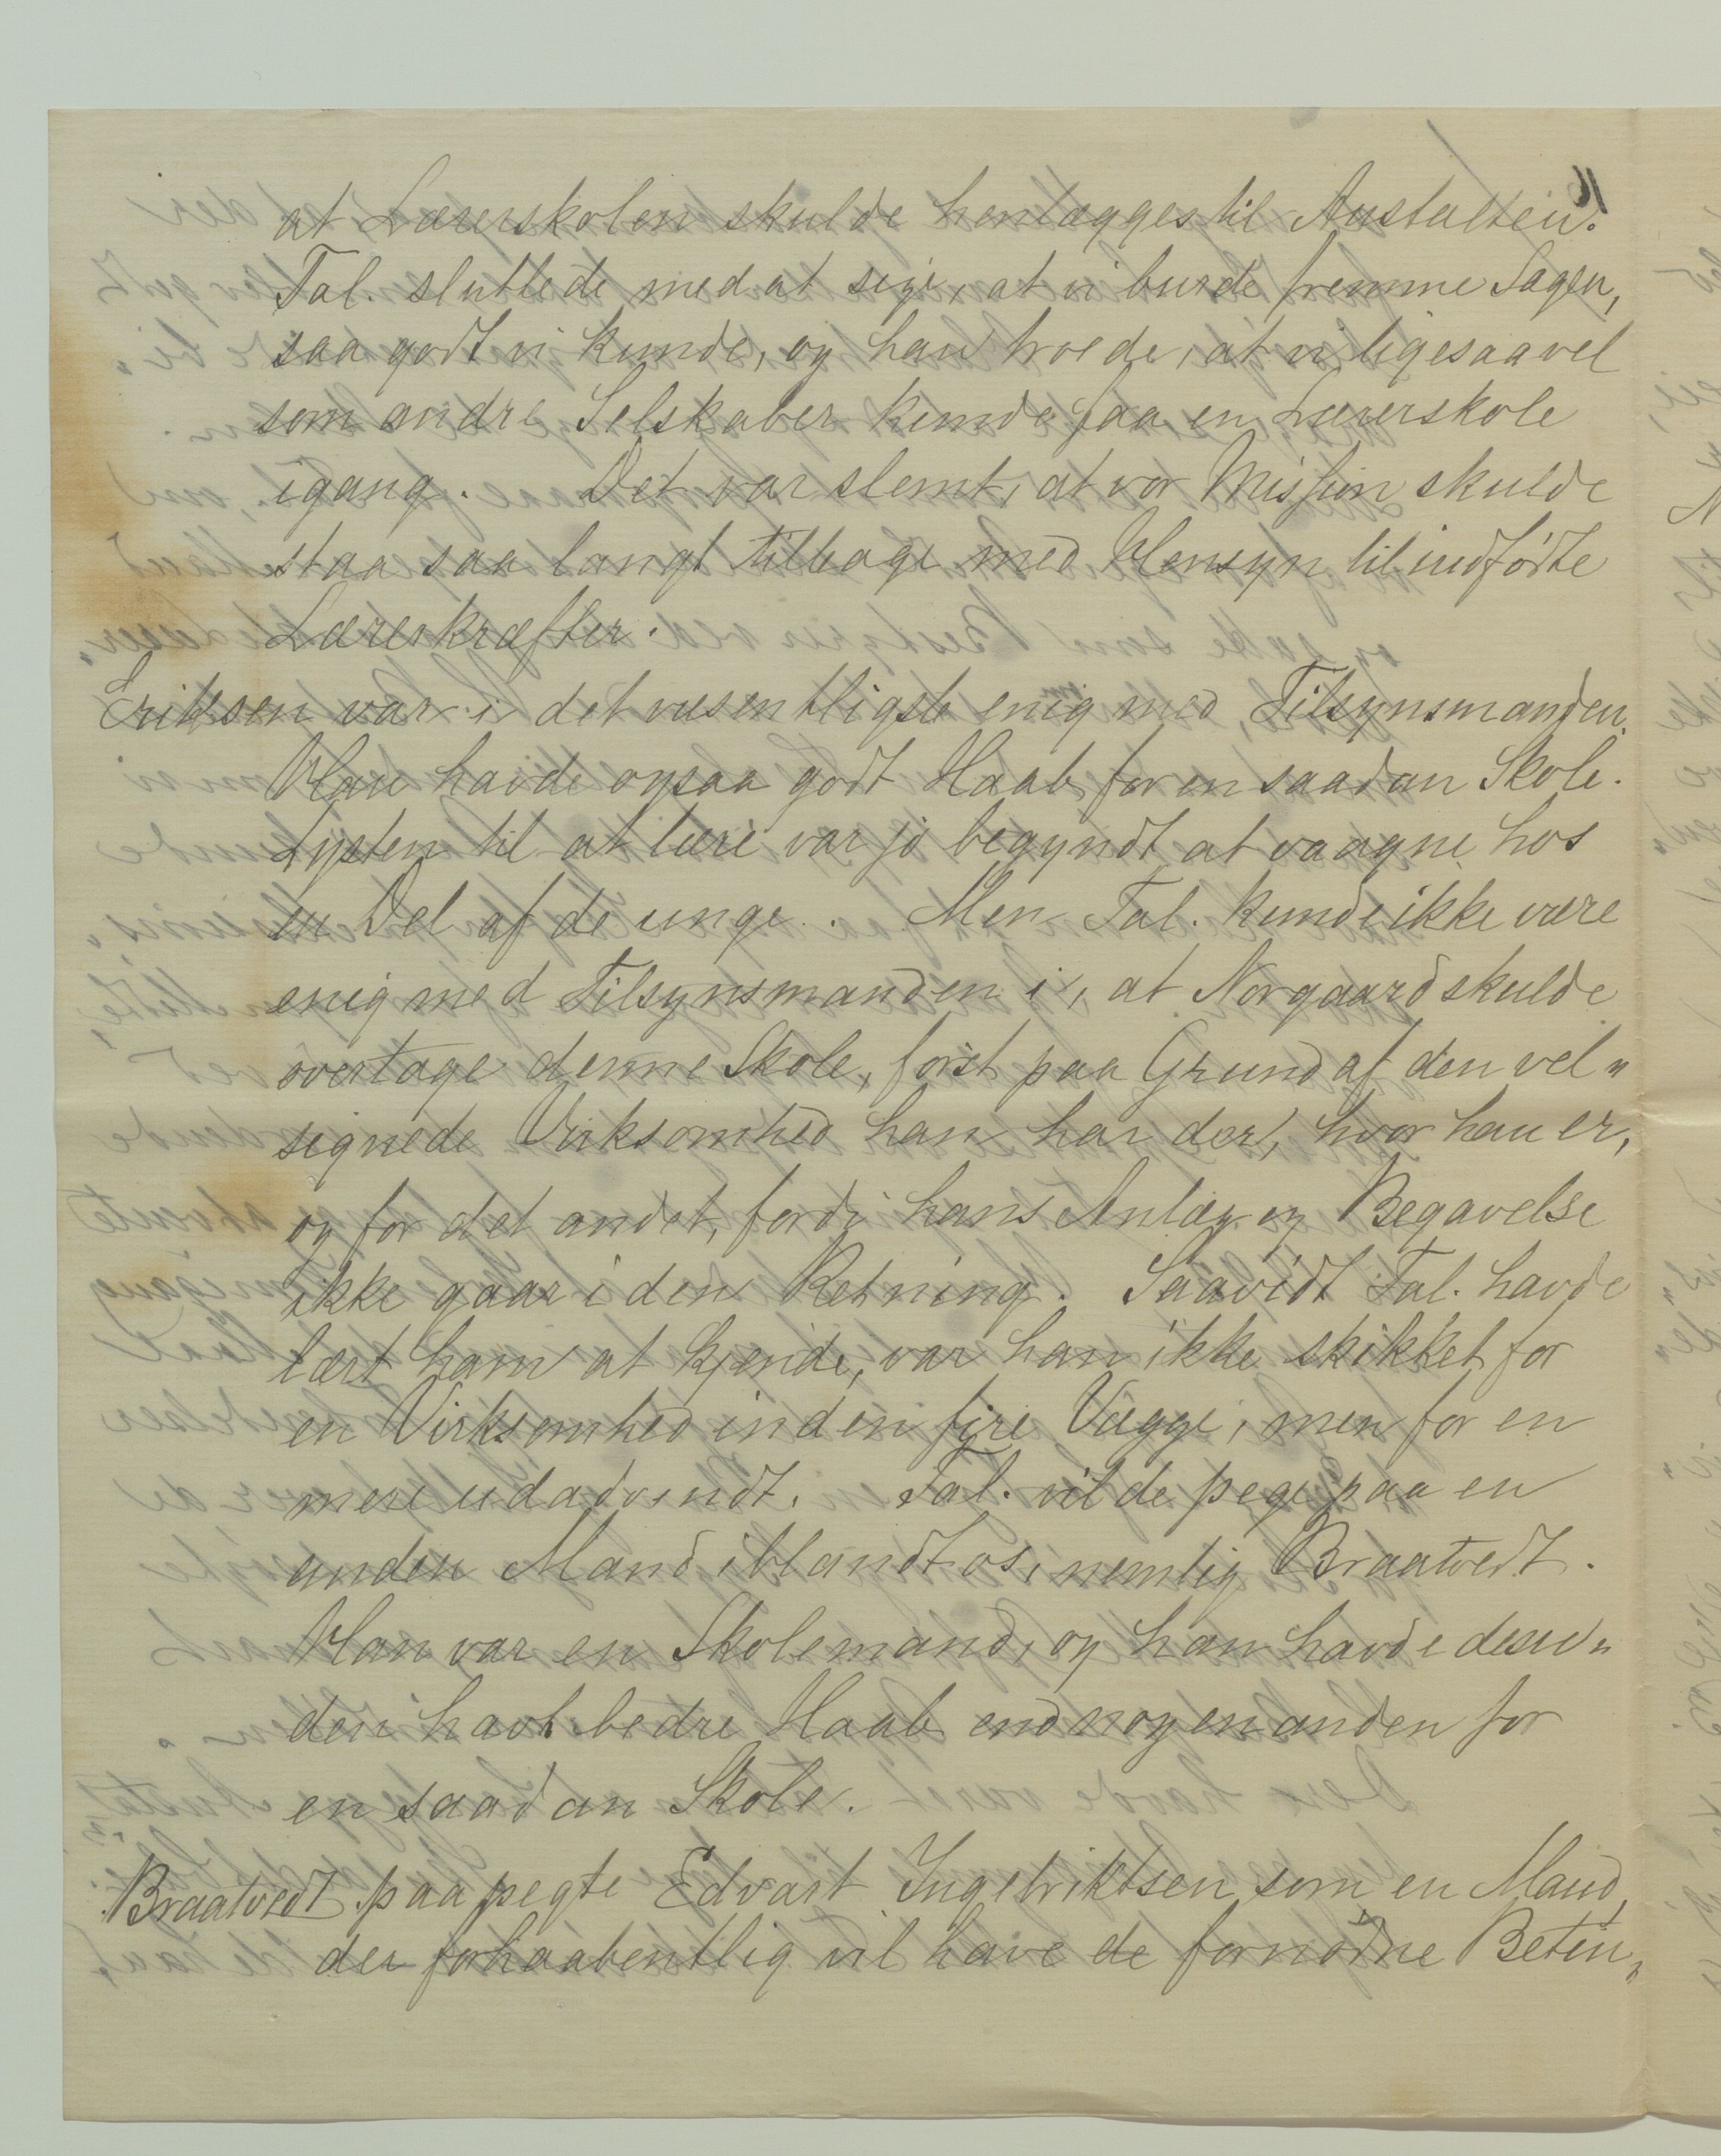 at Lærerskolen skulde henlægges til Anstalten.
Tal. sluttede med at sige, at vi burde fremme Sagen,
saa godt vi kunde, og han troede, at vi ligesaavel
som andre Selskaber kunde faa en Lærerskole
igang. Det var slemt, at vor Mission skulde
staa saa langt tilbage med Hensyn til indfødte
Lærerkræfter.
Eriksen var i det væsentligste enig med Tilsynsmanden.
Han havde ogsaa godt Haab for en saadan Skole.
Lysten til at lære var jo begyndt at vaagne hos
en Del af de unge. Men Tal. kunde ikke være
enig med Tilsynsmanden i, at Norgaard skulde
overtage denne Skole, først paa Grund af den vel„
signede Virksomhed han har der, hvor han er,
og for det andet, fordi hans Anlæg og Begavelse
ikke gaar i den Retning. Saavidt Tal. havde
lært ham at kjende, var han ikke skikket for
en Virksomhed inden fire Vægge, men for en
mere udadvendt. Tal. vilde pege paa en
anden Mand iblandt os, nemlig Braatvedt.
Han var en Skolemand, og han havde desu„
den havt bedre Haab end nogen anden for
en saadan Skole.
Braatvedt paapegte Edvart Ingebriktsen som en Mand,
der forhaabentlig vil have de fornødne Betin„